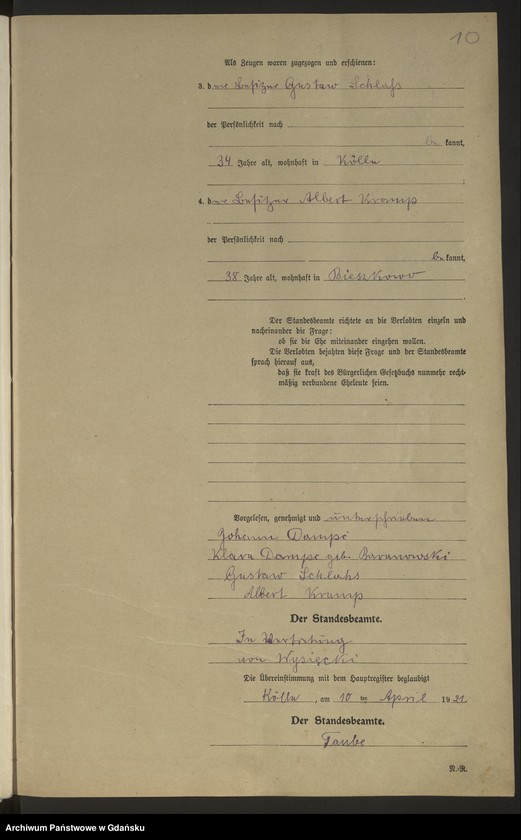 10
Als Zeugen waren zugezogen und erschienen:
3. der Besitzer Gustaw Schlahs
der Persönlichkeit nach
bekannt,
34 Jahre alt, wohnhaft in Kölln
;
4. der Besitzer Albert Kramp
der Persönlichkeit nach
bekannt,
38 Jahre alt, wohnhaft in Bieszkowo
.
Der Standesbeamte richtete an die Verlobten einzeln und
nacheinander die Frage:
ob sie die Ehe miteinander eingehen wollen.
Die Verlobten bejahten diese Frage und der Standesbeamte
sprach hierauf aus,
daß sie kraft des Bürgerlichen Gesetzbuchs nunmehr recht-
mäßig verbundene Eheleute seien.
Vorgelesen, genehmigt und unterschrieben
Johann Dampc
Klara Dampc geb. Baranowski
Gustaw Schlahs
Albert Kramp
Der Standesbeamte.
In Vertretung
von Wysięcki
Die Übereinstimmung mit dem Hauptregister beglaubigt
Kölln, am 10 ten April 1921
Der Standesbeamte.
Taube
N.-R.
Archiwum Państwowe w Gdańsku